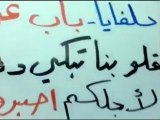 حلفايا- باب
قلوبنا تبكي
لأجلكم اصبرو